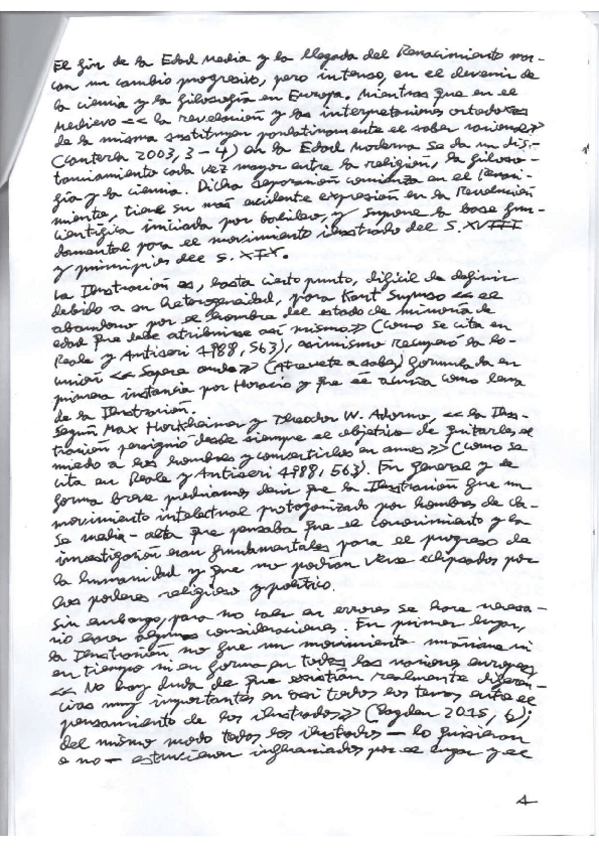 El fin de la Edad Media y la llegada del Renacimiento mar-
can un cambio progresivo, pero intenso, en el devenir de
la ciencia y la filosofía en Europa. Mientras que en el
Medievo << la revelación y las interpretaciones ortodoxas
de la misma sustituyen paulatinamente el saber racional>>
(Canterla 2003, 3-4) en la Edad Moderna se da un dis-
tanciamiento cada vez mayor entre la religión, la filoso-
fía y la ciencia. Dicha separación comienza en el Renaci-
miento, tiene su más evidente expresión en la Revolución
Científica iniciada por Galileo, y supone la base fun-
damental para el movimiento ilustrado del S. XVIII
y principios del S. XIX.
La Ilustración es, hasta cierto punto, difícil de definir
debido a su heterogeneidad, para Kant supuso << el
abandono por el hombre del estado de minoría de
edad que debe atribuirse así mismo>> (como se cita en
Reale y Antiseri 1988, 563), asimismo recuperó la lo-
cución << Sapere aude>> (Atrévete a saber) formulada en
primera instancia por Horacio y que se acuña como lema
de la Ilustración.
Según Max Horkheimer y Theodor W. Adorno, << la Ilus-
tración persiguió desde siempre el objetivo de quitarles el
miedo a los hombres y convertirlos en amos>> (como se
cita en Reale y Antiseri 1988, 563). En general y de
forma breve podríamos decir que la Ilustración fue un
movimiento intelectual protagonizado por hombres de cla-
se media-alta que pensaba que el conocimiento y la
investigación eran fundamentales para el progreso de
la humanidad y que no podían verse eclipsados por
los poderes religioso y político.
Sin embargo, para no caer en errores se hace necesa-
rio hacer algunas consideraciones. En primer lugar,
la Ilustración no fue un movimiento unánime ni
en tiempo ni en forma en todas las naciones europeas
<< No hay duda de que existían realmente diferen-
cias muy importantes en casi todos los temas entre el
pensamiento de los ilustrados>> (Bogdan 2015, 6);
del mismo modo todos los ilustrados — lo quisieran
o no — estuvieron influenciados por el lugar y el
1